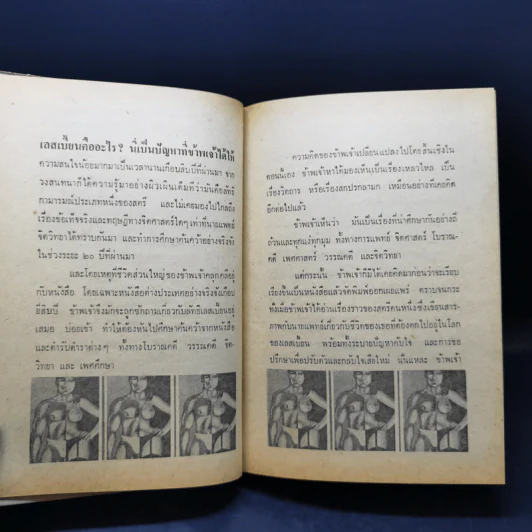 เลสเบี้ยนคืออะไร? นี่เป็นปัญหาที่ข้าพเจ้าได้ให้
ความสนใจน้อยมากมาเป็นเวลานานเกือบสิบปีที่ผ่านมา จาก
วงสนทนาก็ได้ความรู้มาอย่างผิวเผินเต็มที่ว่ามันคือลัทธิ
กามารมณ์ประเภทหนึ่งของสตรี และไม่เคยมองไปไกลถึง
เรื่องข้อเท็จจริงและทฤษฎีทางจิตศาสตร์ใดๆ เท่าที่นายแพทย์
จิตวิทยาได้ทราบกันมา และทำการศึกษาค้นคว้าอย่างจริงจัง
ในช่วงระยะ ๒๐ ปีที่ผ่านมา
และโดยเหตุที่ชีวิตส่วนใหญ่ของข้าพเจ้าคลุกคลีอยู่
กับหนังสือ โดยเฉพาะหนังสือต่างประเทศอย่างจริงจังเกือบ
ยี่สิบปี ข้าพเจ้าจึงมักจะถูกซักถามเกี่ยวกับลัทธิเลสเบี้ยนอยู่
เสมอ บ่อยเข้า ทำให้ต้องหันไปศึกษาค้นคว้าจากหนังสือ
และตำรับตำราต่างๆ ทั้งทางโบราณคดี วรรณคดี จิต-
วิทยา และ เพศศึกษา
ความคิดของข้าพเจ้าเปลี่ยนแปลงไปโดยสิ้นเชิงใน
ตอนนี้เอง ข้าพเจ้าหาได้มองเห็นเป็นเรื่องเหลวไหล เป็น
เรื่องวิตถาร หรือเรื่องสกปรกลามก เหมือนอย่างที่เคยคิด
อีกต่อไปแล้ว
ข้าพเจ้าเห็นว่า มันเป็นเรื่องที่น่าศึกษากันอย่างถี่
ถ้วนและทุกแง่ทุกมุม ทั้งทางการแพทย์ จิตศาสตร์ โบราณ-
คดี เพศศาสตร์ วรรณคดี และจิตวิทยา
แต่กระนั้น ข้าพเจ้าก็มิได้เคยคิดมาก่อนว่าจะเรียบ
เรียงขึ้นเป็นหนังสือแล้วจัดพิมพ์ออกเผยแพร่ ตราบจนกระ
ทั่งเมื่อข้าพเจ้าได้อ่านเรื่องราวของสตรีคนหนึ่งซึ่งเขียนสาร-
ภาพกับนายแพทย์เกี่ยวกับชีวิตของเธอที่ต้องตกไปอยู่ในโลก
ของเลสเบี้ยน พร้อมทั้งระบายปัญหาคับใจ และการขอ
ปรึกษาเพื่อปรับตัวและกลับใจเสียใหม่ นั่นแหละ ข้าพเจ้า